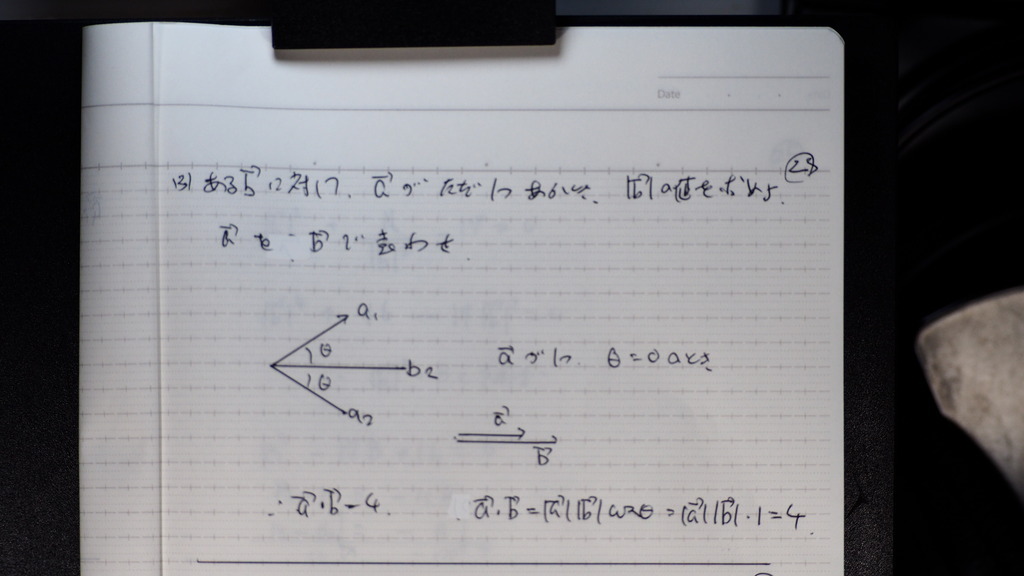 Date
28
(3) ある b→ に対して、a→ がただ1つあるとき、|b→| の値を求めよ.
a→ を b→ で表わせ
a1
θ
b2
θ
a2
a→ が1つ、θ=0 のとき
a→
b→
∴ a→・b→ = 4.
a→・b→ = |a→||b→| cosθ = |a→||b→|・1 = 4